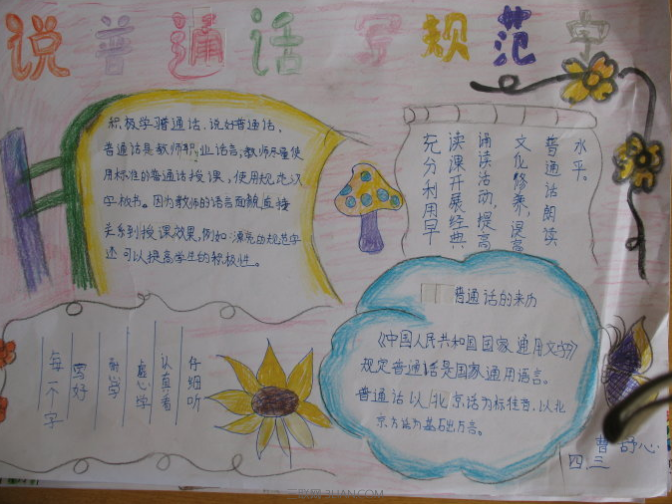 说普通话 写规范字
积极学习普通话、说好普通话,
普通话是教师职业语言,教师尽量使
用标准的普通话授课,使用规范汉
字板书。因为教师的语言面貌直接
关系到授课效果,例如:漂亮的规范字
还可以提高学生的积极性。
充分利用早
读课开展经典
诵读活动,提高
文化修养,提高
普通话朗读
水平。
普通话的来历
《中国人民共和国国家通用文字》
规定普通话是国家通用语言。
普通话以北京话为标准音,以北
京方话为基础方言。
每一个字
写好
勤学
虚心学
认真看
仔细听
曹舒心
四、三